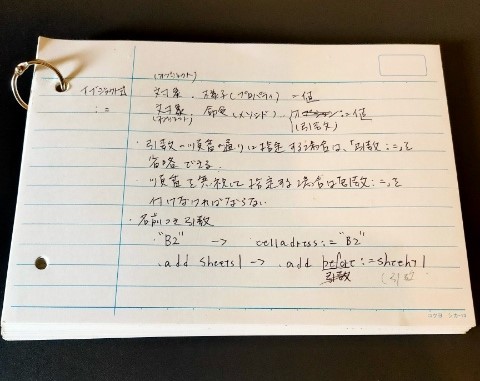 (オブジェクト)
対象 . 様子(プロパティ) = 値
:= 対象 . 命令(メソッド) := 値
(オブジェクト) (引数名)
・引数の順番の通りに指定する場合は、「引数:=」を
省略できる。
・順番を無視して指定する場合は「引数:=」を
付けなければならない
・名前つき引数
"B2" → celladress:="B2"
.add sheets1 → .add before:=sheets1
引数